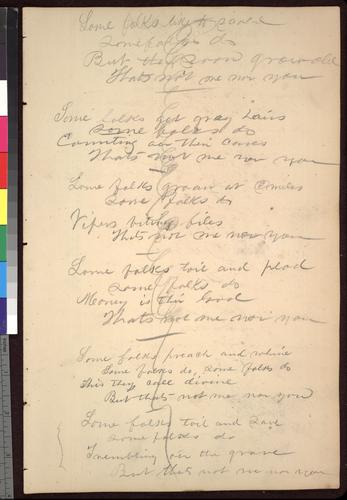 Some folks like to
Some folks do
But they soon grow old
Thats not me nor you
Some folks get gray hairs
Some folks do
Counting all their cares
Thats not me nor you
Some folks groan at
Some folks do
Vipers biting files
Thats not me nor you
Some folks toil and plod
Some folks do
Money is their God
Thats not me nor you
Some folks preach and whine
Some folks do, some folks do
This they call divine
But thats not me nor you
Some folks toil and
some folks do
Trembling on the grave
But thats not me nor you